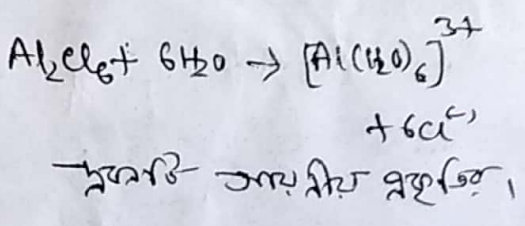 Al₂Cl₆ + 6H₂O → [Al(H₂O)₆]³⁺
+ 6Cl⁽⁻⁾
দ্রবণটি আয়নীয় প্রকৃতির।